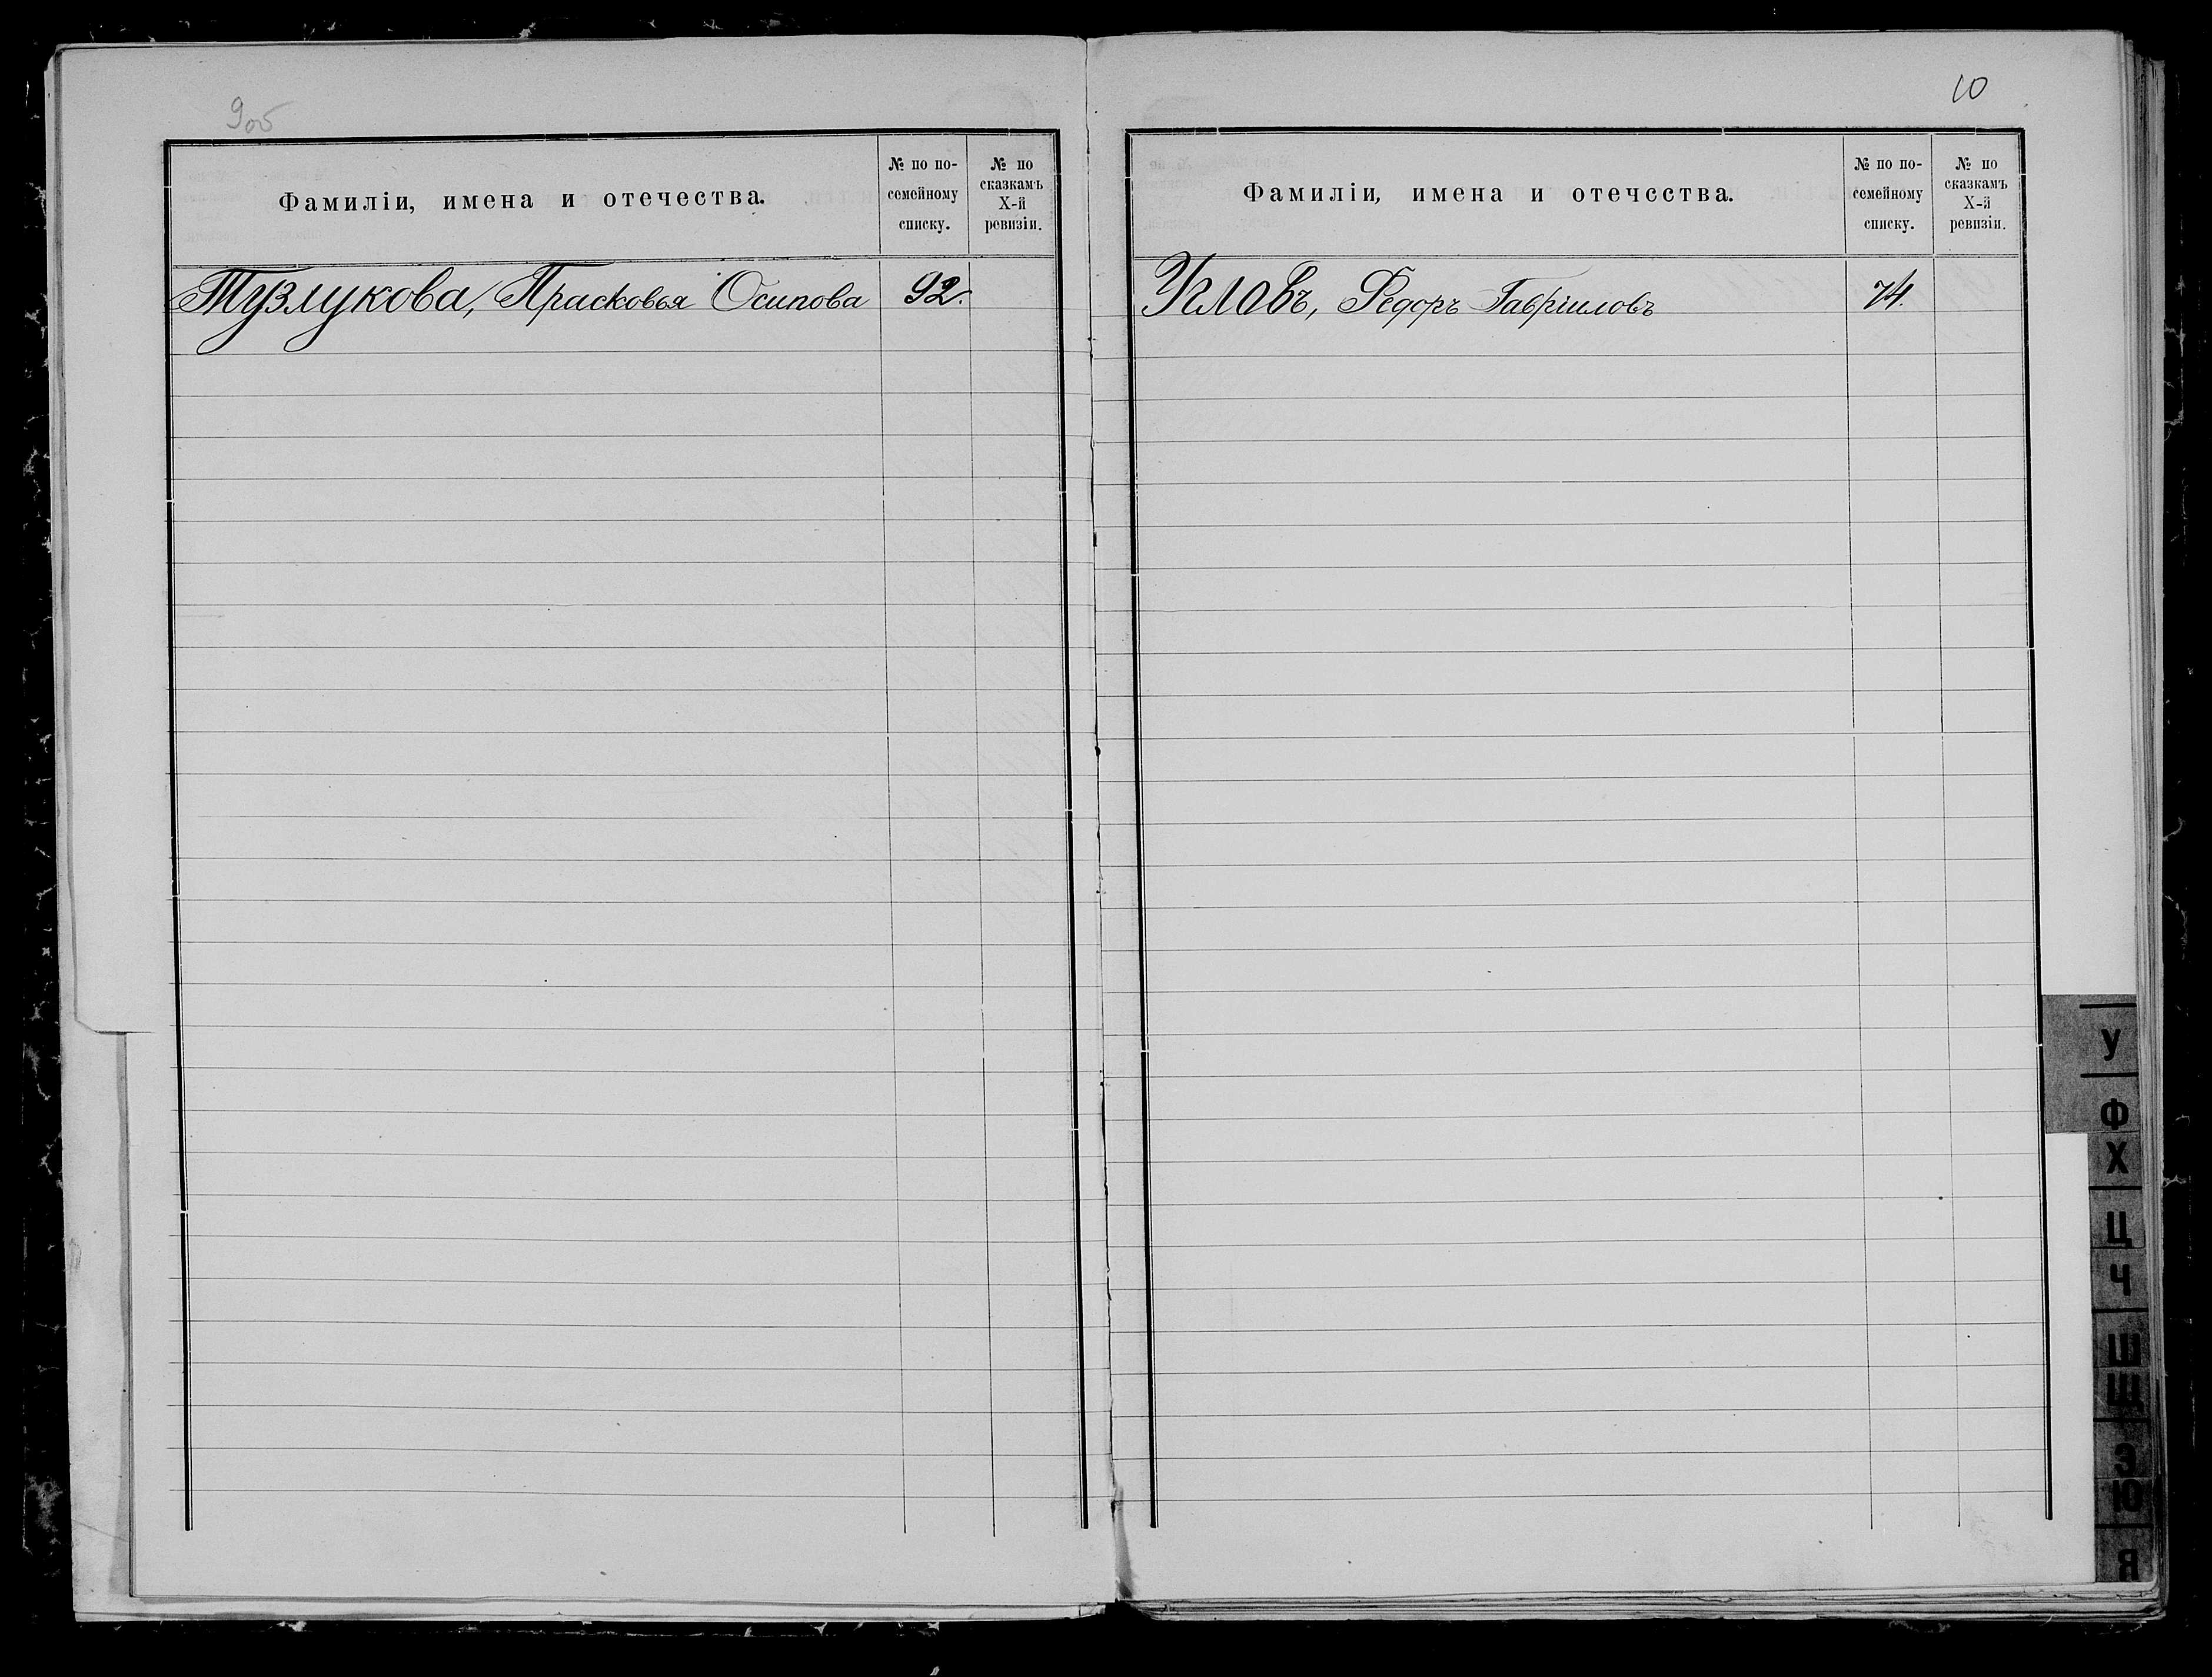 9об
Фамиліи, имена и отечества.
№ по по-
семейному
списку.
№ по
сказкамъ
X-й
ревизіи.
Тузлукова, Прасковья Осипова 92.
10
Фамиліи, имена и отечества.
№ по по-
семейному
списку.
№ по
сказкамъ
X-й
ревизіи.
Угловъ, Федоръ Гавріиловъ 74.
У
Ф
Х
Ц
Ч
Ш
Щ
Э
Ю
Я